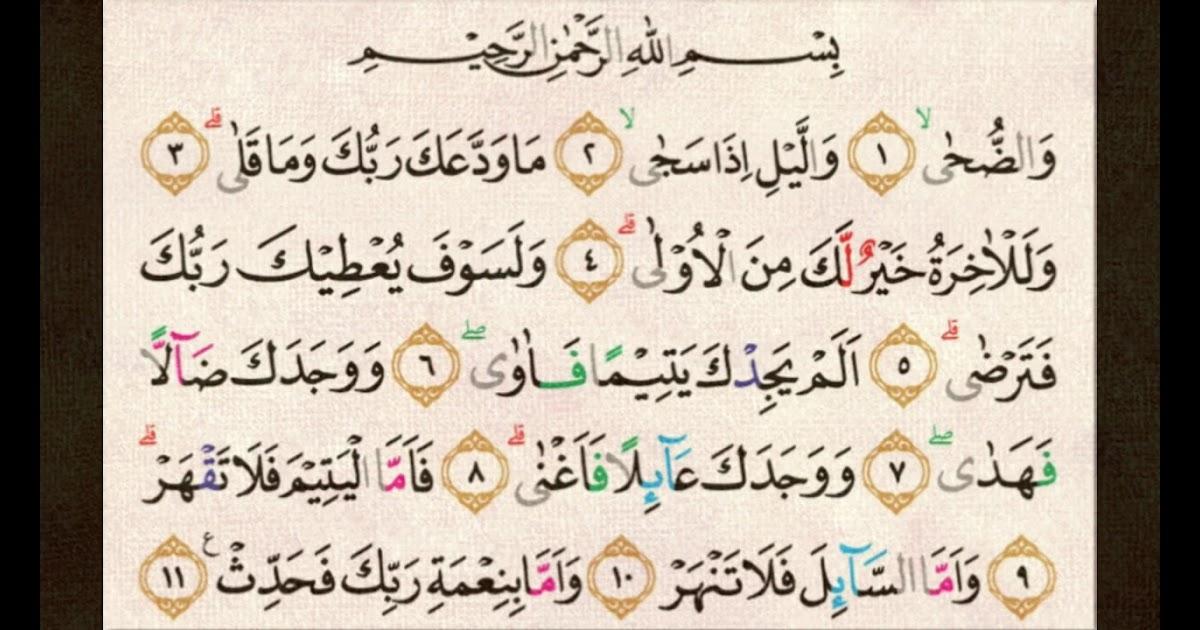 بِسْمِ اللّٰهِ الرَّحْمٰنِ الرَّحِيْمِ
وَالضُّحٰىۙ ١ وَالَّيْلِ اِذَا سَجٰىۙ ٢ مَا وَدَّعَكَ رَبُّكَ وَمَا قَلٰىۗ ٣
وَلَلْاٰخِرَةُ خَيْرٌ لَّكَ مِنَ الْاُوْلٰىۗ ٤ وَلَسَوْفَ يُعْطِيْكَ رَبُّكَ
فَتَرْضٰىۗ ٥ اَلَمْ يَجِدْكَ يَتِيْمًا فَاٰوٰىۖ ٦ وَوَجَدَكَ ضَاۤلًّا
فَهَدٰىۖ ٧ وَوَجَدَكَ عَاۤىِٕلًا فَاَغْنٰىۗ ٨ فَاَمَّا الْيَتِيْمَ فَلَا تَقْهَرْۗ
٩ وَاَمَّا السَّاۤىِٕلَ فَلَا تَنْهَرْ ١٠ وَاَمَّا بِنِعْمَةِ رَبِّكَ فَحَدِّثْ ع ١١